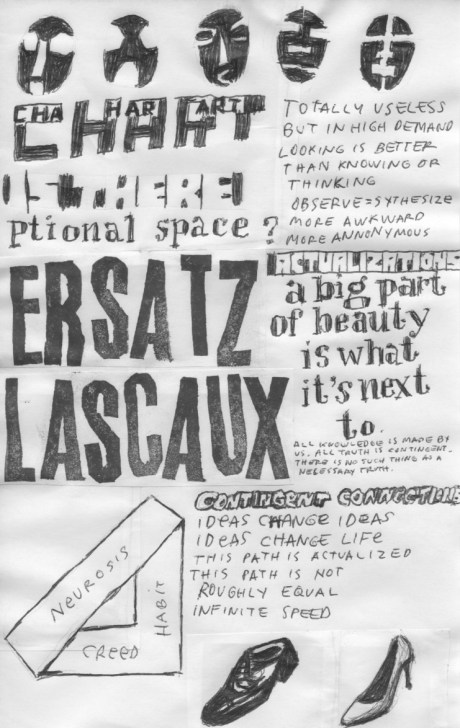 CHA HAR ART
TOTALLY USELESS
BUT IN HIGH DEMAND
LOOKING IS BETTER
THAN KNOWING OR
THINKING
OBSERVE=SYTHESIZE
MORE AWKWARD
MORE ANNONYMOUS
ptional space ?
ERSATZ
LASCAUX
ACTUALIZATIONS
a big part
of beauty
is what
it's next
to.
ALL KNOWLEDGE IS MADE BY
US. ALL TRUTH IS CONTINGENT.
THERE IS NO SUCH THING AS A
NECESSARY TRUTH.
CONTINGENT CONNECTIONS
IDEAS CHANGE IDEAS
IDEAS CHANGE LIFE
THIS PATH IS ACTUALIZED
THIS PATH IS NOT
ROUGHLY EQUAL
INFINITE SPEED
NEUROSIS
HABIT
CREED